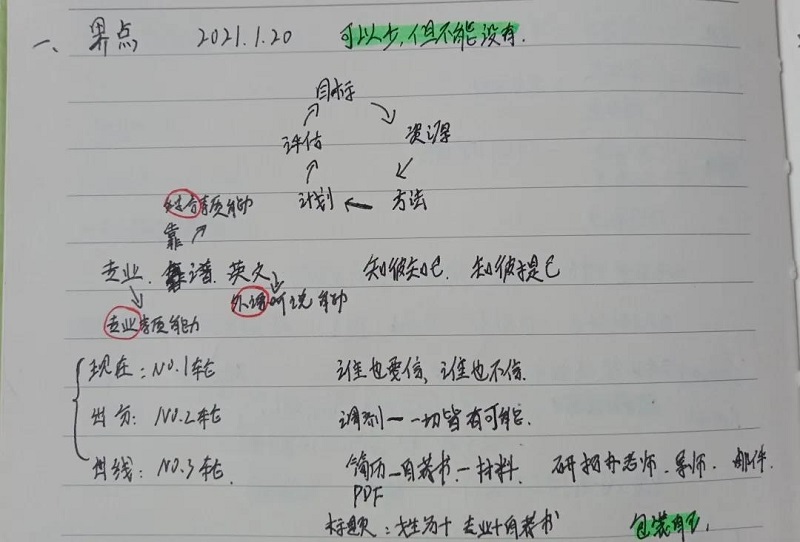 一、果点 2021.1.20 可以少,但不能没有.
目标
评估 资源
计划 方法
综合素质能力
靠
专业. 靠谱. 英文 知彼知己. 知彼提己
外语听说能力
专业素质能力
现在: NO.1轮 谁也要信, 谁也不信.
出分: NO.2轮 调剂一一切皆有可能.
出线: NO.3轮. 简历—自荐书—材料. 研招办老师. 导师. 邮件.
PDF
标题: 姓名+专业+自荐书 包装自己.